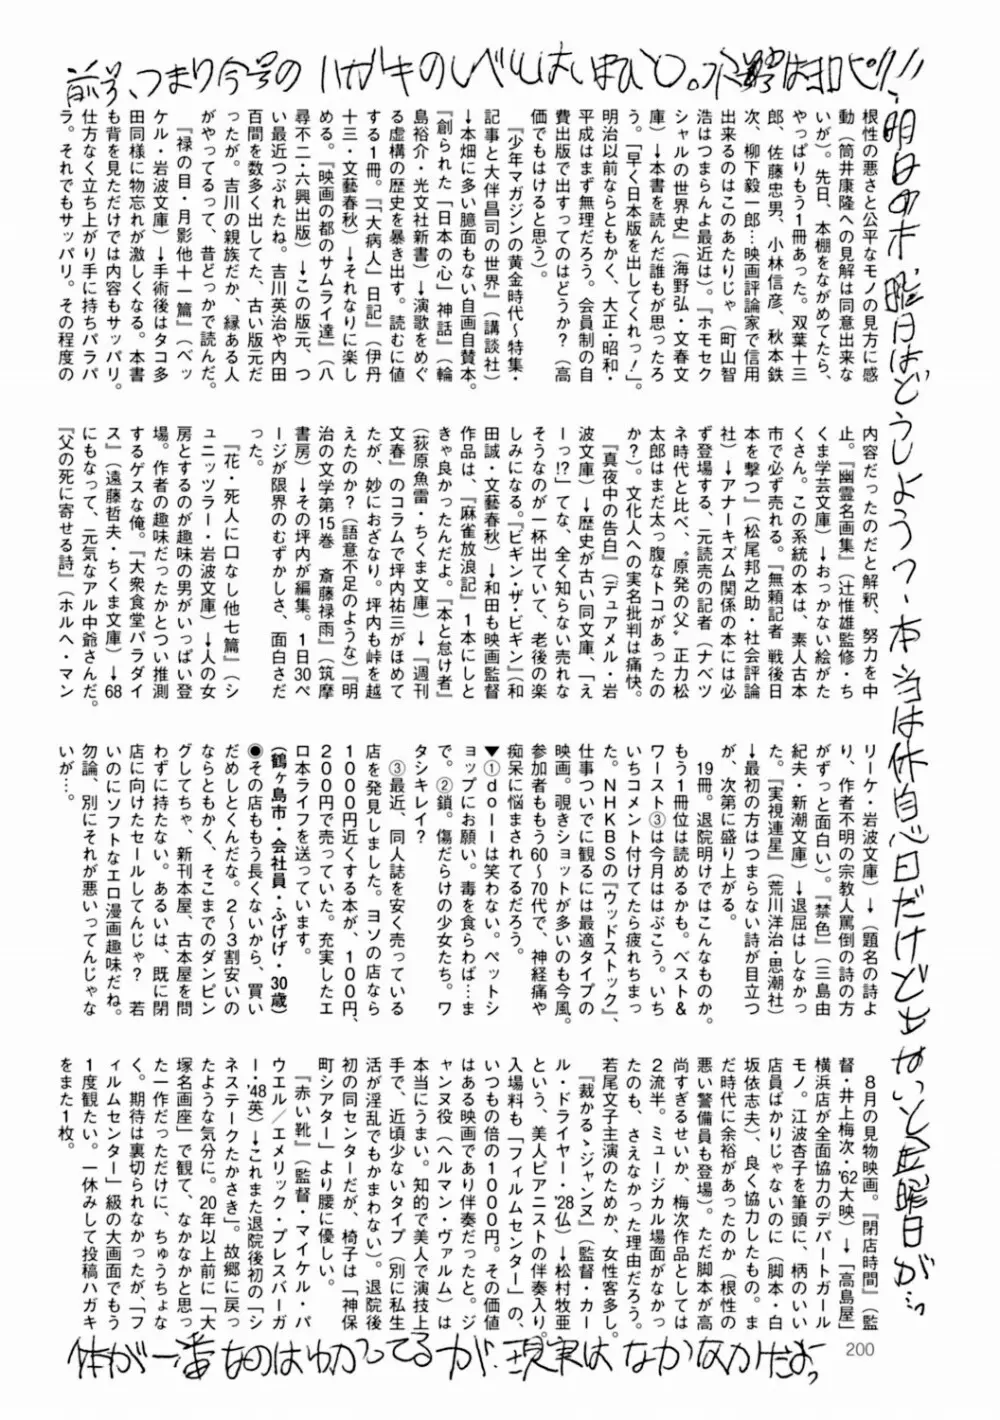 前号、つまり今号のハガキのレベルはいまひと。水野はコピ!!
根性の悪さと公平なモノの見方に感
動(筒井康隆への見解は同意出来な
いが)。先日、本棚をながめてたら、
やっぱりもう1冊あった。双葉十三
郎、佐藤忠男、小林信彦、秋本鉄
次、柳下毅一郎…映画評論家で信用
出来るのはこのあたりじゃ(町山智
浩はつまらんよ最近は)。『ホモセク
シャルの世界史』(海野弘・文春文
庫)→本書を読んだ誰もが思ったろ
う。「早く日本版を出してくれっ!」。
明治以前ならともかく、大正・昭和・
平成はまず無理だろう。会員制の自
費出版で出すってのはどうか?(高
価でもはけると思う)。
『少年マガジンの黄金時代~特集・
記事と大伴昌司の世界』(講談社)
→本畑に多い臆面もない自画自賛本。
『創られた「日本の心」神話』(輪
島裕介・光文社新書)→演歌をめぐ
る虚構の歴史を暴き出す。読むに値
する1冊。『「大病人」日記』(伊丹
十三・文藝春秋)→それなりに楽し
める。『映画の都のサムライ達』(八
尋不二・六興出版)→この版元、つ
い最近つぶれたね。吉川英治や内田
百間を数多く出してた、古い版元だ
ったが。吉川の親族だか、縁ある人
がやってるって、昔どっかで読んだ。
『禄の目・月影他十一篇』(ベッ
ケル・岩波文庫)→手術後はタコ多
田同様に物忘れが激しくなる。本書
も背を見ただけでは内容もサッパリ。
仕方なく立ち上がり手に持ちパラパ
ラ。それでもサッパリ。その程度の
内容だったのだと解釈、努力を中
止。『幽霊名画集』(辻惟雄監修・ち
くま学芸文庫)→おっかない絵がた
くさん。この系統の本は、素人古本
市で必ず売れる。『無頼記者 戦後日
本を撃つ』(松尾邦之助・社会評論
社)→アナーキズム関係の本には必
ず登場する、元読売の記者(ナベツ
ネ時代と比べ、〝原発の父〟正力松
太郎はまだ太っ腹なトコがあったの
か?)。文化人への実名批判は痛快。
『真夜中の告白』(デュアメル・岩
波文庫)→歴史が古い同文庫、「え
ーっ!?」てな、全く知らない売れな
そうなのが一杯出ていて、老後の楽
しみになる。『ビギン・ザ・ビギン』(和
田誠・文藝春秋)→和田も映画監督
作品は、『麻雀放浪記』1本にしと
きゃ良かったんだよ。『本と怠け者』
(荻原魚雷・ちくま文庫)→『週刊
文春』のコラムで坪内祐三がほめて
たが、妙におざなり。坪内も峠を越
えたのか?(語意不足のような)『明
治の文学第15巻 斎藤禄雨』(筑摩
書房)→その坪内が編集。1日30ペ
ージが限界のむずかしさ、面白さだ
った。
『花・死人に口なし他七篇』(シ
ュニッツラー・岩波文庫)→人の女
房とするのが趣味の男がいっぱい登
場。作者の趣味だったかとつい推測
するゲスな俺。『大衆食堂パラダイ
ス』(遠藤哲夫・ちくま文庫)→68
にもなって、元気なアル中爺さんだ。
『父の死に寄せる詩』(ホルヘ・マン
リーケ・岩波文庫)→(題名の詩よ
り、作者不明の宗教人罵倒の詩の方
がずっと面白い)。『禁色』(三島由
紀夫・新潮文庫)→退屈はしなかっ
た。『実視連星』(荒川洋治・思潮社)
→最初の方はつまらない詩が目立つ
が、次第に盛り上がる。
19冊。退院明けではこんなものか。
もう1冊位は読めるかも。ベスト&
ワースト③は今月ははぶこう。いち
いちコメント付けてたら疲れちまっ
た。NHKBSの『ウッドストック』、
仕事ついでに観るには最適タイプの
映画。覗きショットが多いのも今風。
参加者ももう60~70代で、神経痛や
痴呆に悩まされてるだろう。
▼①dollは笑わない。ペットシ
ョップにお願い。毒を食らわば…ま
で。②鎖。傷だらけの少女たち。ワ
タシキレイ?
③最近、同人誌を安く売っている
店を発見しました。ヨソの店なら
1000円近くする本が、100円、
200円で売っていた。充実したエ
ロ本ライフを送っています。
(鶴ヶ島市・会社員・ふげげ・30歳)
◉その店ももう長くないから、買い
だめしとくんだな。2~3割安いの
ならともかく、そこまでのダンピン
グしてちゃ、新刊本屋、古本屋を問
わずに持たない。あるいは、既に閉
店に向けたセールしてんじゃ? 若
いのにソフトなエロ漫画趣味だね。
勿論、別にそれが悪いってんじゃな
いが…。
8月の見物映画。『閉店時間』(監
督・井上梅次・'62大映)→「高島屋」
横浜店が全面協力のデパートガール
モノ。江波杏子を筆頭に、柄のいい
店員ばかりじゃないのに(脚本・白
坂依志夫)、良く協力したもの。ま
だ時代に余裕があったのか(根性の
悪い警備員も登場)。ただ脚本が高
尚すぎるせいか、梅次作品としては
2流半。ミュージカル場面がなかっ
たのも、さえなかった理由だろう。
若尾文子主演のためか、女性客多し。
『裁かるゝジャンヌ』(監督・カー
ル・ドライヤー・'28仏)→松村牧亜
という、美人ピアニストの伴奏入り。
入場料も「フィルムセンター」の、
いつもの倍の1000円。その価値
はある映画であり伴奏だったと。ジ
ャンヌ役(ヘルマン・ヴァルム)は
本当にうまい。知的で美人で演技上
手で、近頃少ないタイプ(別に私生
活が淫乱でもかまわない)。退院後
初の同センターだが、椅子は「神保
町シアター」より腰に優しい。
『赤い靴』(監督・マイケル・パ
ウエル/エメリック・プレスバーガ
ー・'48英)→これまた退院後初の「シ
ネステークたかさき」。故郷に戻っ
たような気分に。20年以上前に「大
塚名画座」で観て、なかなかと思っ
た一作だっただけに、ちゅうちょな
く。期待は裏切られなかったが、「フ
ィルムセンター」級の大画面でもう
1度観たい。一休みして投稿ハガキ
をまた1枚。
明日の木曜日はどうしよう?本当は休息日だけどもないと金曜日が…。
体が一番なのはわかってるが、現実はなかなかだよっ
200